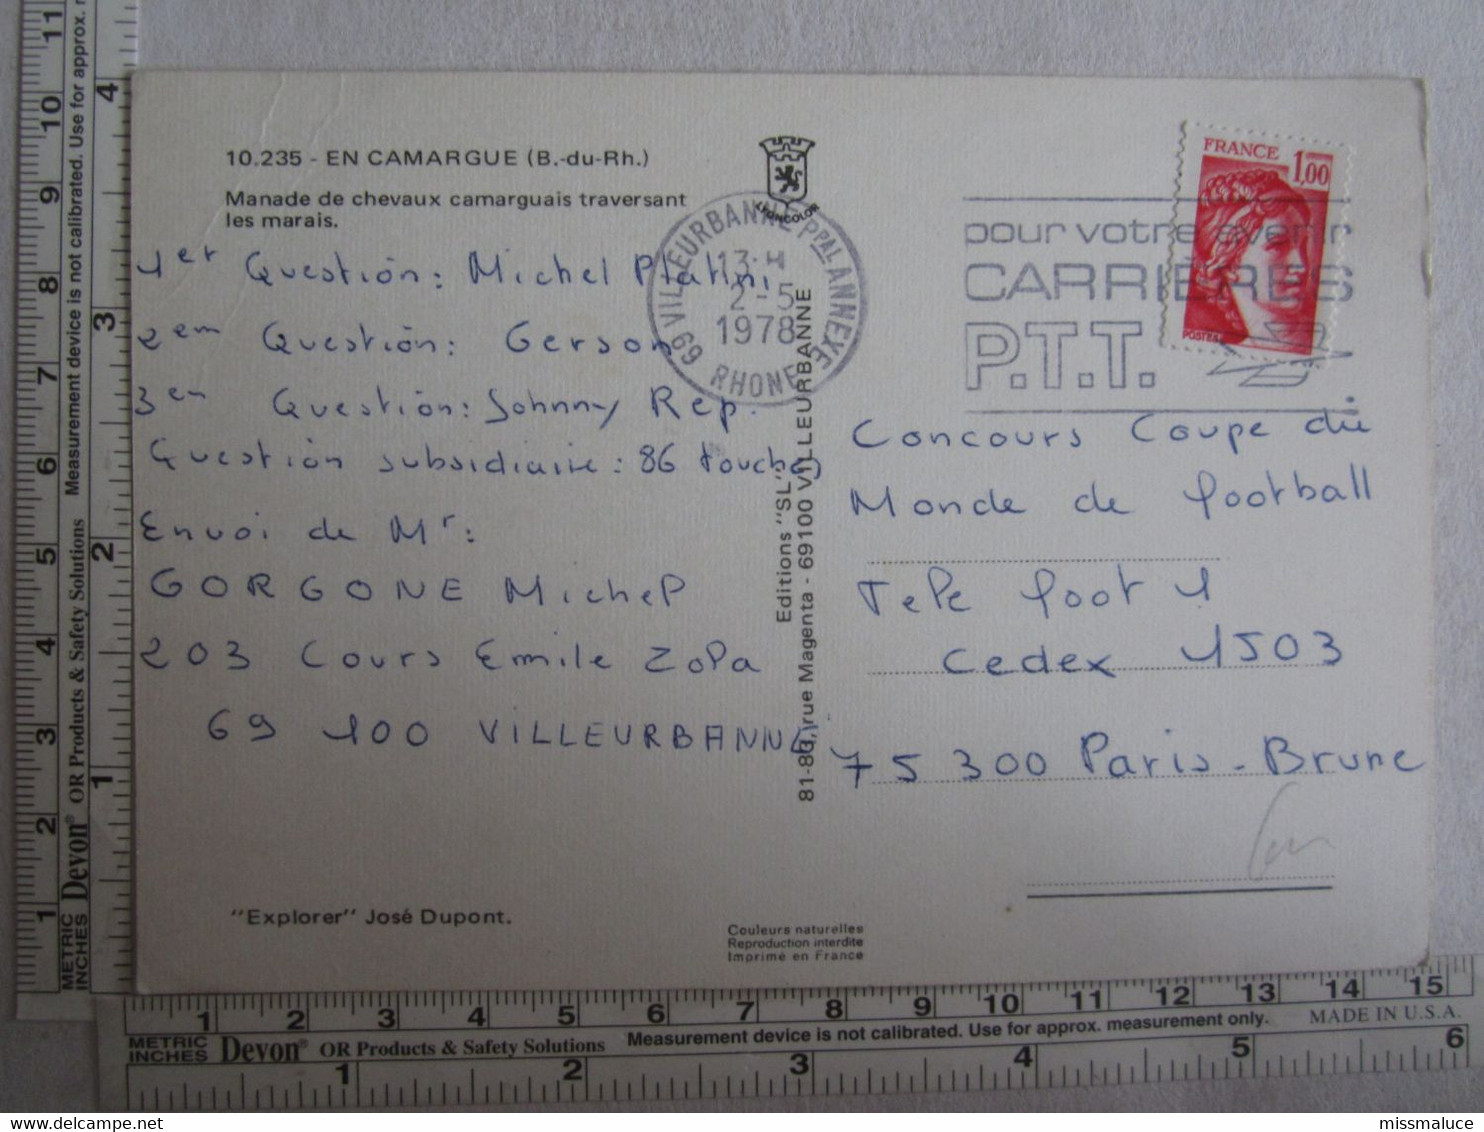 10.235 - EN CAMARGUE (B.-du-Rh.)
Manade de chevaux camarguais traversant
les marais.
LYONCOLOR
1er Question: Michel Platini
2em Question: Gerson
3em Question: Johnny Rep.
Question subsidiaire: 86 touches
Envoi de Mr:
GORGONE Michel
203 Cours Emile Zola
69 100 VILLEURBANNE
"Explorer" José Dupont.
VILLEURBANNE PPAL ANNEXE
13 H
2-5
1978
69 RHONE
Editions "SL"
81-83, rue Magenta - 69100 VILLEURBANNE
Couleurs naturelles
Reproduction interdite
Imprimé en France
pour votre avenir
CARRIÈRES
P.T.T.
FRANCE 1,00
POSTES
Concours Coupe du
Monde de football
Tele foot 1
Cedex 1503
75 300 Paris-Brune
METRIC
INCHES
Devon® OR Products & Safety Solutions
Measurement device is not calibrated. Use for approx. m
1 2 3 4 5 6 7 8 9 10 11
1 2 3 4
1 2 3 4 5 6 7 8 9 10 11 12 13 14 15
METRIC
INCHES
Devon® OR Products & Safety Solutions
Measurement device is not calibrated. Use for approx. measurement only.
MADE IN U.S.A.
1 2 3 4 5 6
missmaluce